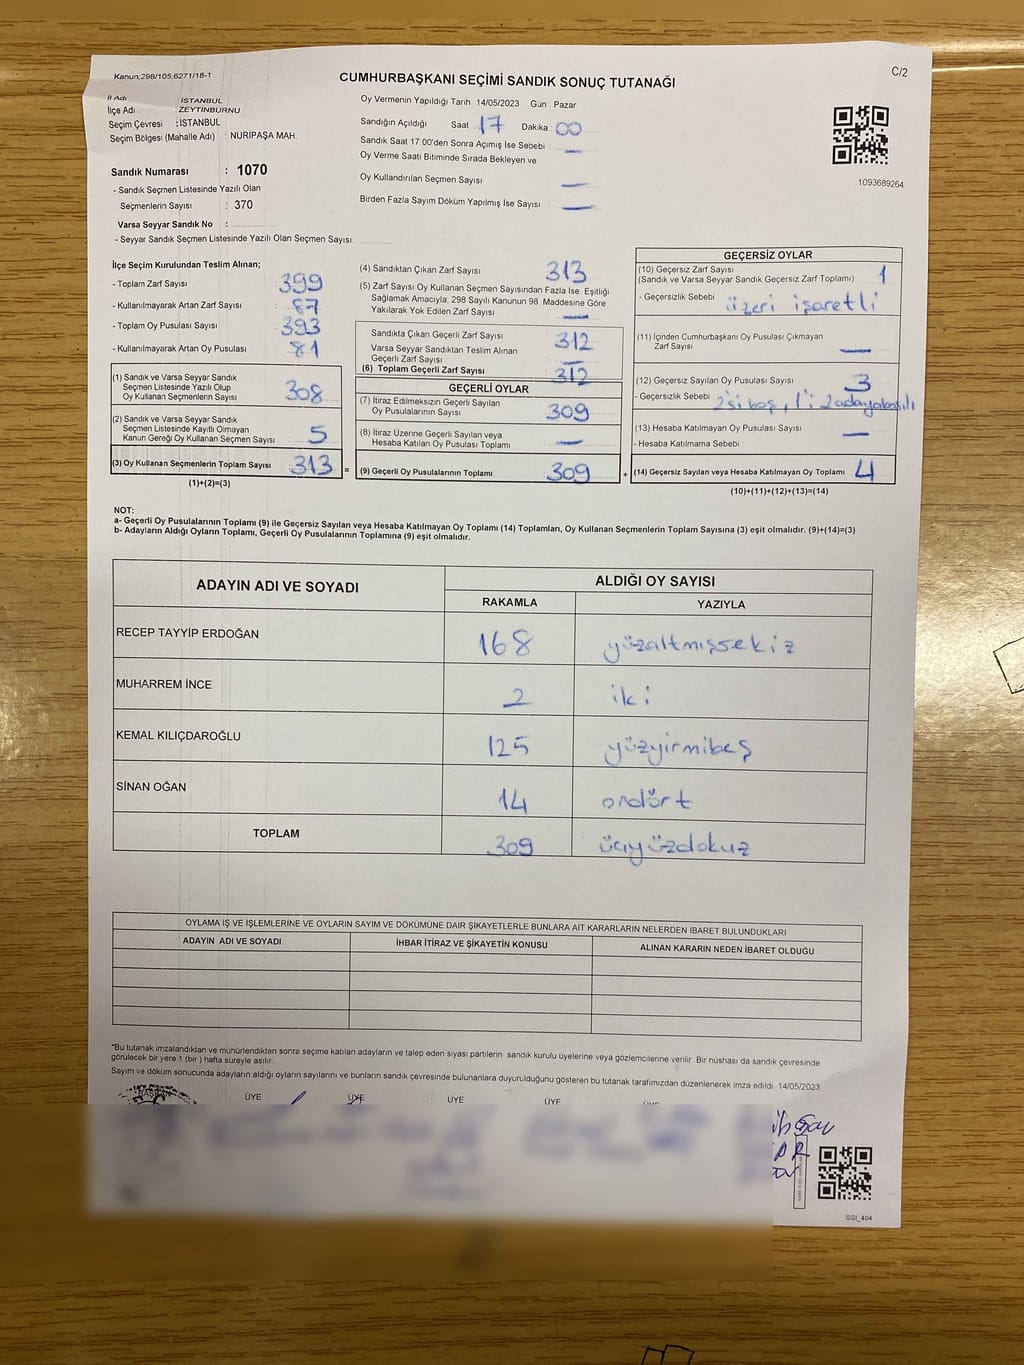 Kanun;298/105,6271/18-1
C/2
CUMHURBAŞKANI SEÇİMİ SANDIK SONUÇ TUTANAĞI
İl Adı : İSTANBUL
İlçe Adı : ZEYTİNBURNU
Seçim Çevresi : İSTANBUL
Seçim Bölgesi (Mahalle Adı) : NURİPAŞA MAH.
Sandık Numarası : 1070
- Sandık Seçmen Listesinde Yazılı Olan
Seçmenlerin Sayısı : 370
Varsa Seyyar Sandık No :
- Seyyar Sandık Seçmen Listesinde Yazılı Olan Seçmen Sayısı:
Oy Vermenin Yapıldığı Tarih 14/05/2023 Gün : Pazar
Sandığın Açıldığı Saat 17 Dakika : 00
Sandık Saat 17.00'den Sonra Açımış İse Sebebi : —
Oy Verme Saati Bitiminde Sırada Bekleyen ve
Oy Kullandırılan Seçmen Sayısı : —
Birden Fazla Sayım Döküm Yapılmış İse Sayısı : —
1093689264
İlçe Seçim Kurulundan Teslim Alınan;
- Toplam Zarf Sayısı : 399
- Kullanılmayarak Artan Zarf Sayısı : 87
- Toplam Oy Pusulası Sayısı : 393
- Kullanılmayarak Artan Oy Pusulası : 81
(1) Sandık ve Varsa Seyyar Sandık
Seçmen Listesinde Yazılı Olup
Oy Kullanan Seçmenlerin Sayısı : 308
(2) Sandık ve Varsa Seyyar Sandık
Seçmen Listesinde Kayıtlı Olmayan
Kanun Gereği Oy Kullanan Seçmen Sayısı : 5
(3) Oy Kullanan Seçmenlerin Toplam Sayısı : 313 =
(1)+(2)=(3)
(4) Sandıktan Çıkan Zarf Sayısı : 313
(5) Zarf Sayısı Oy Kullanan Seçmen Sayısından Fazla İse, Eşitliği
Sağlamak Amacıyla, 298 Sayılı Kanunun 98. Maddesine Göre
Yakılarak Yok Edilen Zarf Sayısı : —
Sandıkta Çıkan Geçerli Zarf Sayısı : 312
Varsa Seyyar Sandıktan Teslim Alınan
Geçerli Zarf Sayısı : —
(6) Toplam Geçerli Zarf Sayısı : 312
GEÇERLİ OYLAR
(7) İtiraz Edilmeksizin Geçerli Sayılan
Oy Pusulalarının Sayısı : 309
(8) İtiraz Üzerine Geçerli Sayılan veya
Hesaba Katılan Oy Pusulası Toplamı : —
(9) Geçerli Oy Pusulalarının Toplamı : 309 +
GEÇERSİZ OYLAR
(10) Geçersiz Zarf Sayısı
(Sandık ve Varsa Seyyar Sandık Geçersiz Zarf Toplamı) : 1
- Geçersizlik Sebebi : üzeri işaretli
(11) İçinden Cumhurbaşkanı Oy Pusulası Çıkmayan
Zarf Sayısı : —
(12) Geçersiz Sayılan Oy Pusulası Sayısı : 3
- Geçersizlik Sebebi : 2'si boş, 1'i 2 adaya basılı
(13) Hesaba Katılmayan Oy Pusulası Sayısı : —
- Hesaba Katılmama Sebebi :
(14) Geçersiz Sayılan veya Hesaba Katılmayan Oy Toplamı : 4
(10)+(11)+(12)+(13)=(14)
NOT:
a- Geçerli Oy Pusulalarının Toplamı (9) ile Geçersiz Sayılan veya Hesaba Katılmayan Oy Toplamı (14) Toplamları, Oy Kullanan Seçmenlerin Toplam Sayısına (3) eşit olmalıdır. (9)+(14)=(3)
b- Adayların Aldığı Oyların Toplamı, Geçerli Oy Pusulalarının Toplamına (9) eşit olmalıdır.
ADAYIN ADI VE SOYADI ALDIĞI OY SAYISI
RAKAMLA YAZIYLA
RECEP TAYYİP ERDOĞAN 168 yüzaltmışsekiz
MUHARREM İNCE 2 iki
KEMAL KILIÇDAROĞLU 125 yüzyirmibeş
SİNAN OĞAN 14 ondört
TOPLAM 309 üçyüzdokuz
OYLAMA İŞ VE İŞLEMLERİNE VE OYLARIN SAYIM VE DÖKÜMÜNE DAİR ŞİKAYETLERLE BUNLARA AİT KARARLARIN NELERDEN İBARET BULUNDUKLARI
ADAYIN ADI VE SOYADI İHBAR İTİRAZ VE ŞİKAYETİN KONUSU ALINAN KARARIN NEDEN İBARET OLDUĞU
*Bu tutanak imzalandıktan ve mühürlendikten sonra seçime katılan adayların ve talep eden siyasi partilerin sandık kurulu üyelerine veya gözlemcilerine verilir. Bir nüshası da sandık çevresinde
görülecek bir yere 1 (bir ) hafta süreyle asılır.
Sayım ve döküm sonucunda adayların aldığı oyların sayılarını ve bunların sandık çevresinde bulunanlara duyurulduğunu gösteren bu tutanak tarafımızdan düzenlenerek imza edildi. 14/05/2023
BAŞKAN ÜYE ÜYE ÜYE ÜYE ÜYE
SSI_404